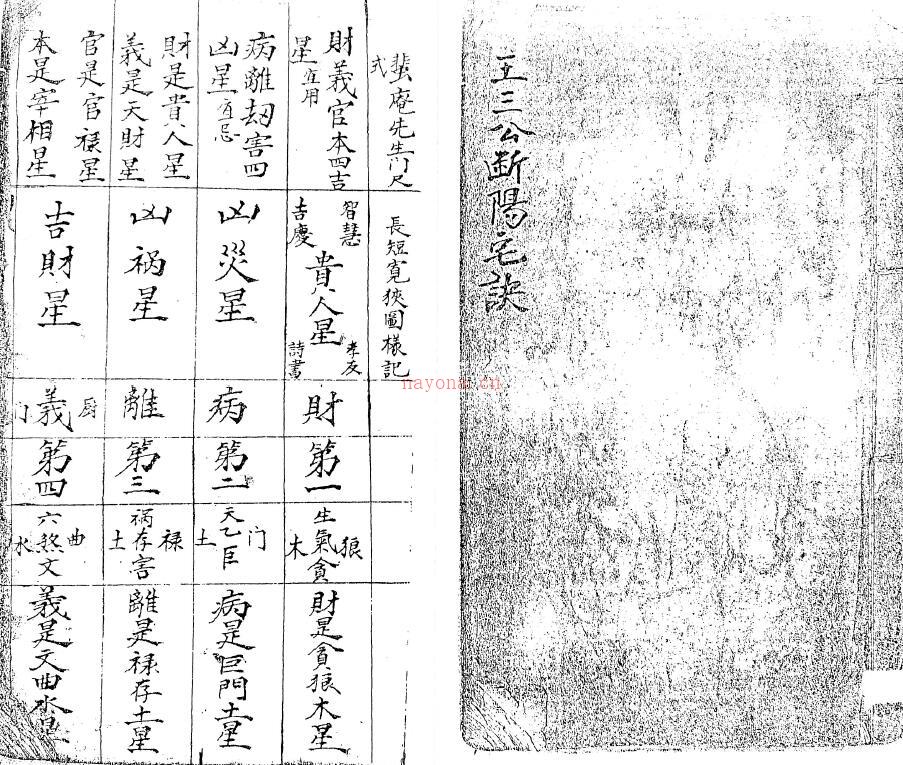 王三公斷陽宅訣
庵先生门尺
式
長短寬狹圖樣記
財義官本四吉
星宜用
智慧
吉慶
貴人星
孝友
詩書
財
第一
生氣貪
狼
木
財是貪狼木星
病離劫害四
凶星宜忌
凶災星
病
第二
天乙巨
门
土
病是巨門土星
財是貴人星
義是天財星
凶祸星
離
第三
祸存害
禄
土
離是禄存土星
官是官禄星
本是宰相星
吉財星
厨
義
门
第四
六煞文
曲
水
義是文曲水星
nayona.cn